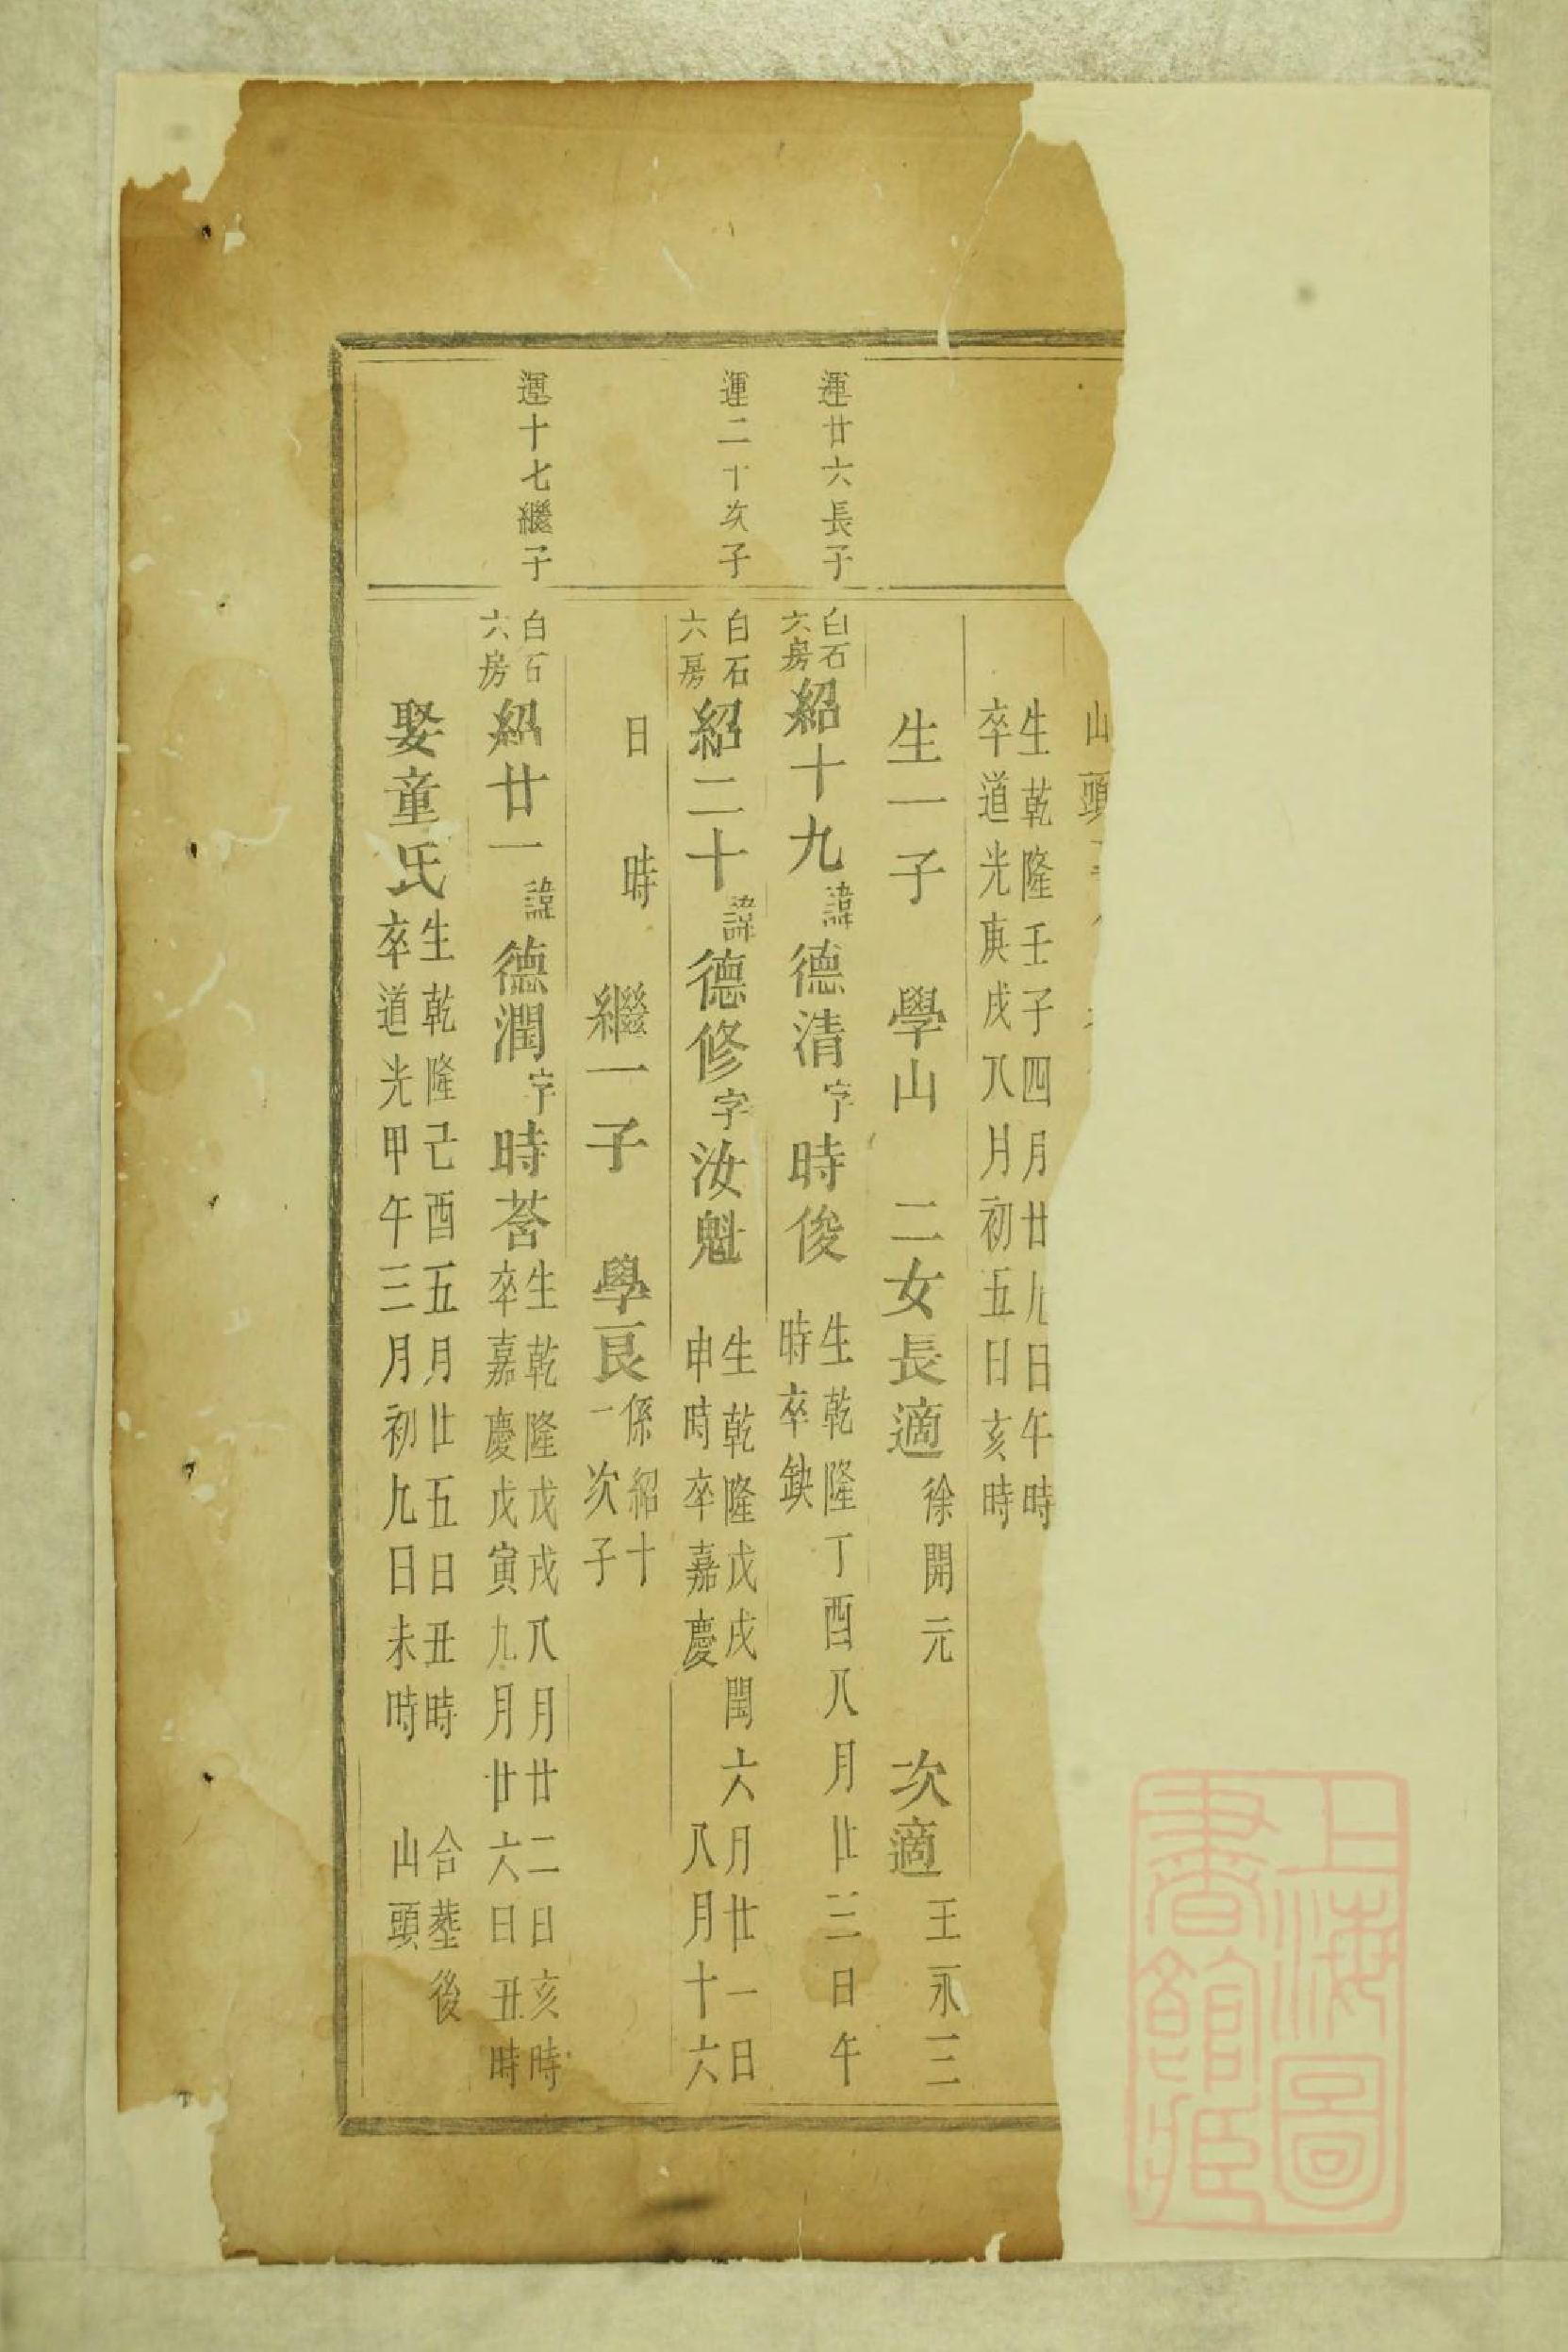 山頭
生乾隆壬子四月廿九日午時
卒道光庚戌八月初五日亥時
生一子 學山 二女長適徐開元 次適王永三
運廿六長子
白石六房紹十九諱德清字時俊 生乾隆丁酉八月廿三日午時卒缺
運二十次子
白石六房紹二十諱德修字汝魁 生乾隆戊戌閏六月廿一日申時卒嘉慶 八月十六
日 時 繼一子 學良係紹十一次子
運十七繼子
白石六房紹廿一諱德潤字時荅生乾隆戊戌八月廿二日亥時卒嘉慶戊寅九月廿六日丑時
娶童氏生乾隆己酉五月廿五日丑時卒道光甲午三月初九日未時 合塟後山頭
上海圖書館藏